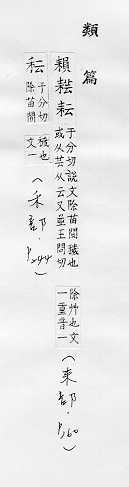 類篇
耘
于分切說文除苗間穢也
或从芸从云又並王問切
除艸也文
一重音一
(耒部·P.160)
秐
于分切
除苗間
穢也
文一
(禾部·P.244)